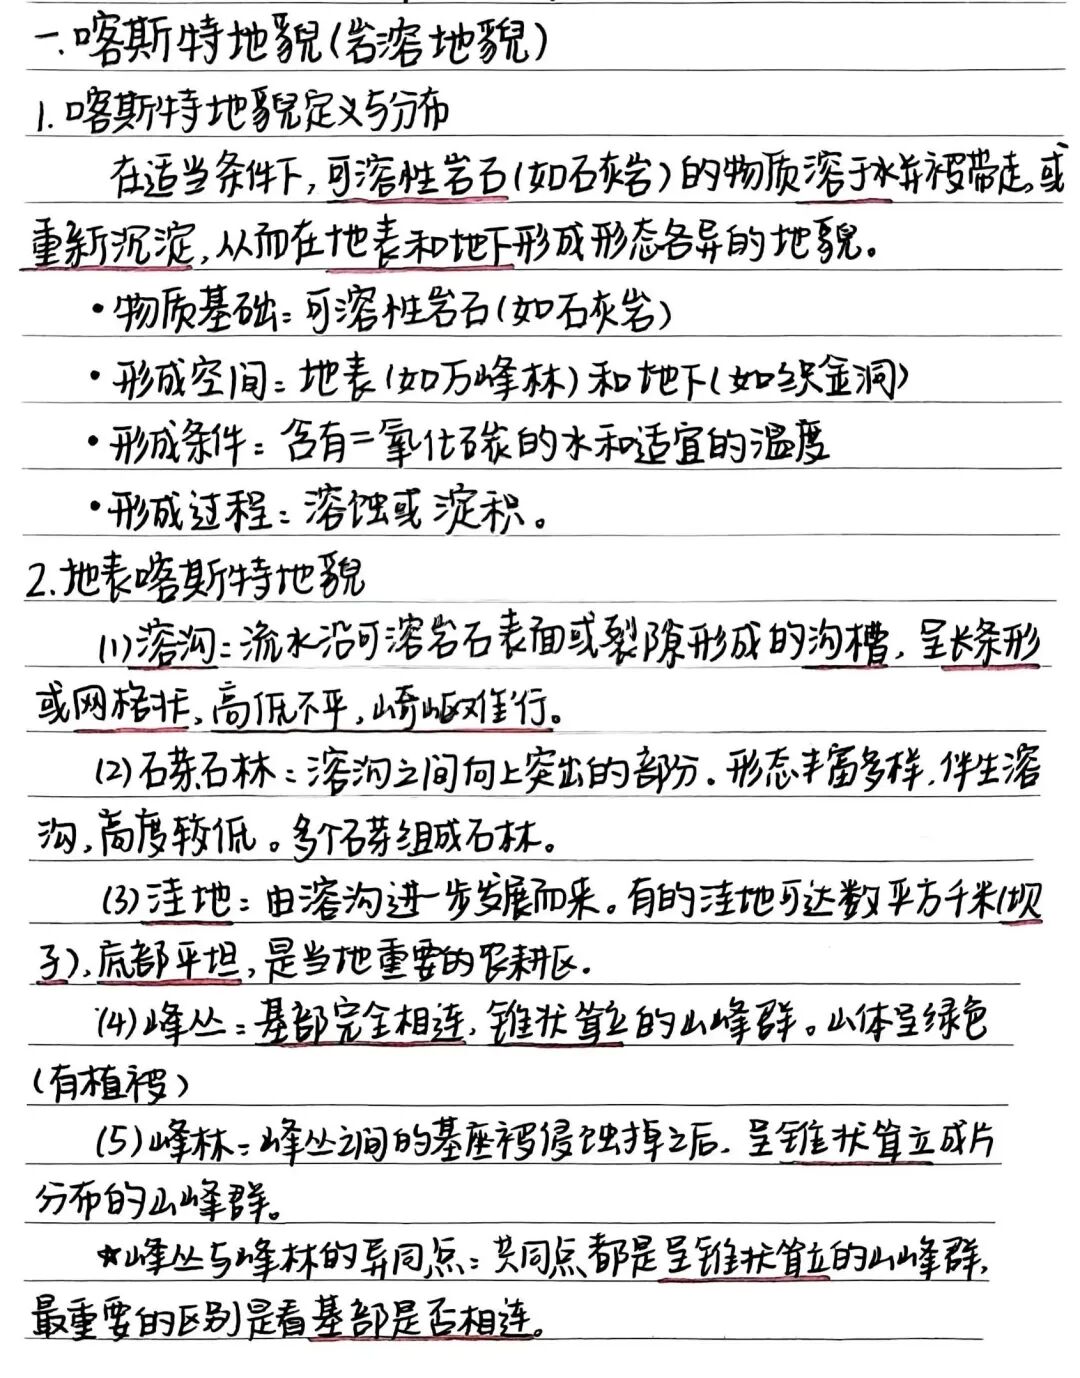 一.喀斯特地貌(岩溶地貌)
1.喀斯特地貌定义与分布
在适当条件下,可溶性岩石(如石灰岩)的物质溶于水并被带走,或
重新沉淀,从而在地表和地下形成形态各异的地貌。
·物质基础:可溶性岩石(如石灰岩)
·形成空间:地表(如万峰林)和地下(如织金洞)
·形成条件:含有二氧化碳的水和适宜的温度
·形成过程:溶蚀或淀积。
2.地表喀斯特地貌
(1)溶沟:流水沿可溶岩石表面或裂隙形成的沟槽,呈长条形
或网格状,高低不平,崎岖难行。
(2)石芽石林:溶沟之间向上突出的部分.形态丰富多样,伴生溶
沟,高度较低。多个石芽组成石林。
(3)洼地:由溶沟进一步发展而来。有的洼地可达数平方千米(坝
子),底部平坦,是当地重要的农耕区.
(4)峰丛:基部完全相连,锥状耸立的山峰群。山体呈绿色
(有植被)
(5)峰林:峰丛之间的基座被侵蚀掉之后,呈锥状耸立成片
分布的山峰群。
★峰丛与峰林的异同点:共同点都是呈锥状耸立的山峰群,
最重要的区别是看基部是否相连。